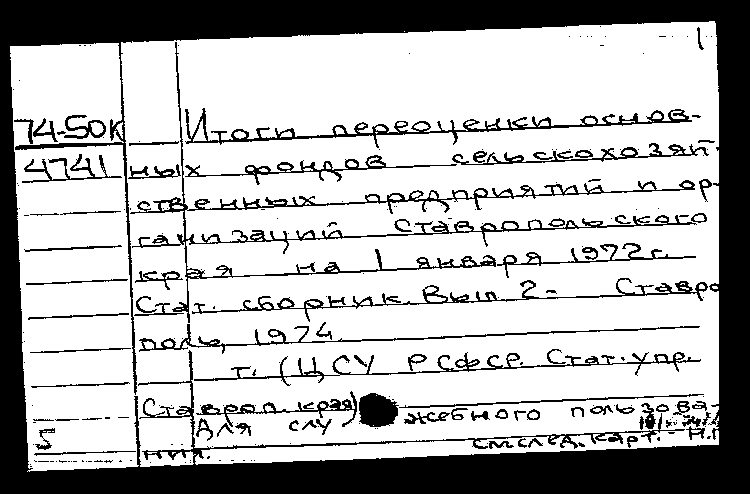 1
74-50к Итоги переоценки основ-
4741 ных фондов сельскохозяй-
ственных предприятий и ор-
ганизаций Ставропольского
края на 1 января 1972 г.
Стат. сборник. Вып 2- Ставро
поль, 1974.
т. (ЦСУ РСФСР. Стат. упр.
Ставроп. края)
Для слу жебного пользова-
5 ния. см.след. карт. - Н.П